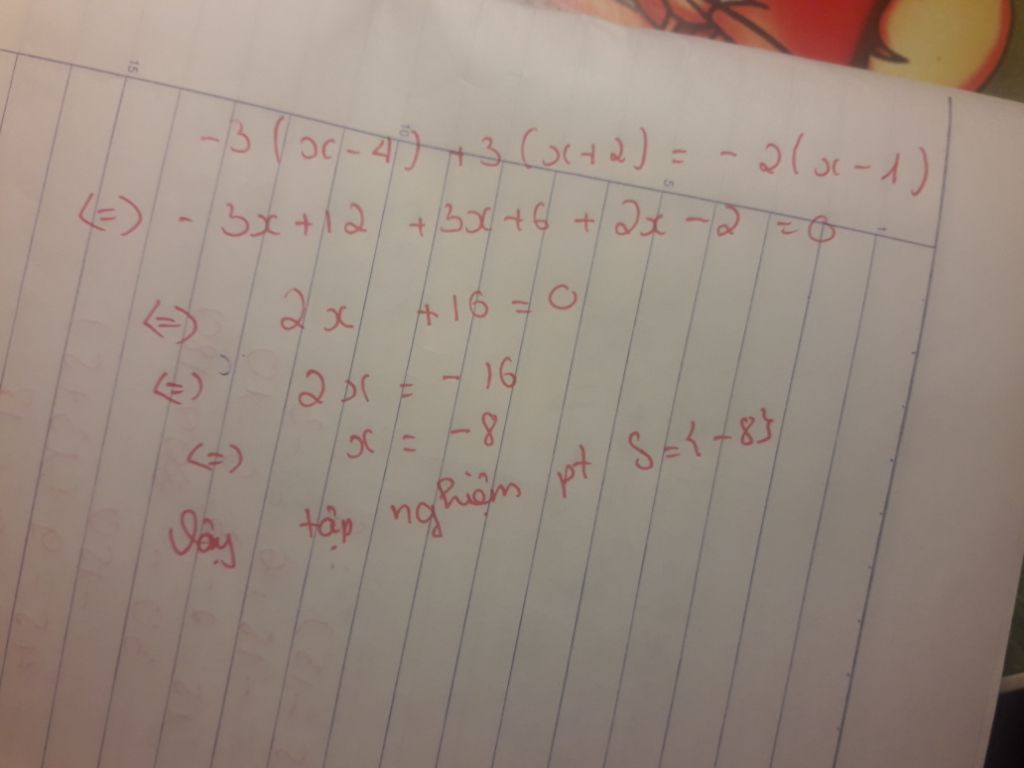 15
10
5
1
-3(x-4)+3(x+2)=-2(x-1)
<=> -3x+12+3x+6+2x-2=0
<=> 2x+16=0
<=> 2x=-16
<=> x=-8
Vậy tập nghiệm pt S={-8}